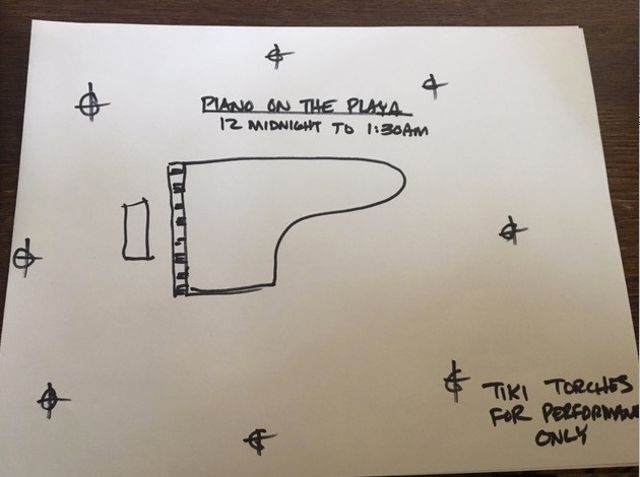 PIANO ON THE PLAYA
12 MIDNIGHT TO 1:30AM
TIKI TORCHES
FOR PERFORMAN
ONLY